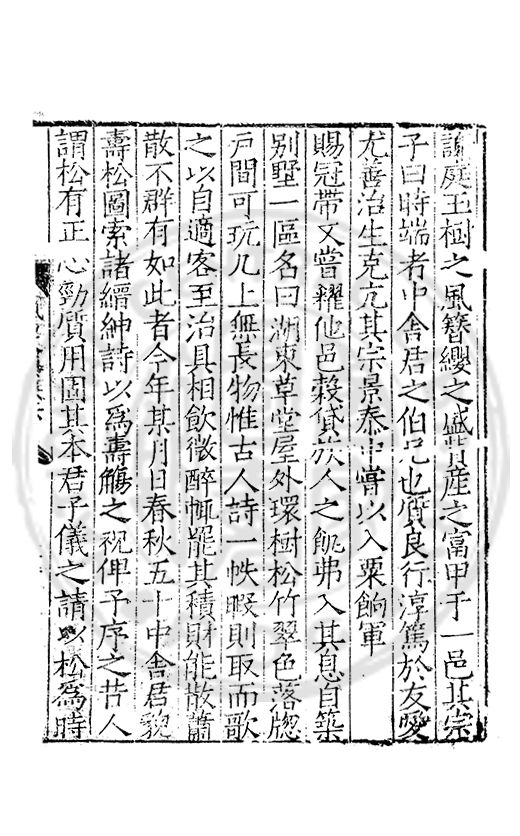 謝庭玉樹之風簪纓之盛貲産之富甲于一邑其宗
子曰時端者中舍君之伯兄也質良行淳篤於友愛
尤善治生克亢其宗景泰中嘗以入粟餉軍
賜冠帶又嘗糴他邑穀貸族人之飢弗入其息自築
别墅一區名曰湖東草堂屋外環樹松竹翠色落牎
戶間可玩几上無長物惟古人詩一帙暇則取而歌
之以自適客至治具相飲微醉輒罷其積財能散蕭
散不群有如此者今年某月日春秋五十中舍君貌
壽松圖索諸縉紳詩以爲壽觴之祝俾予序之昔人
謂松有正心勁質用固其本君子儀之請以松爲時